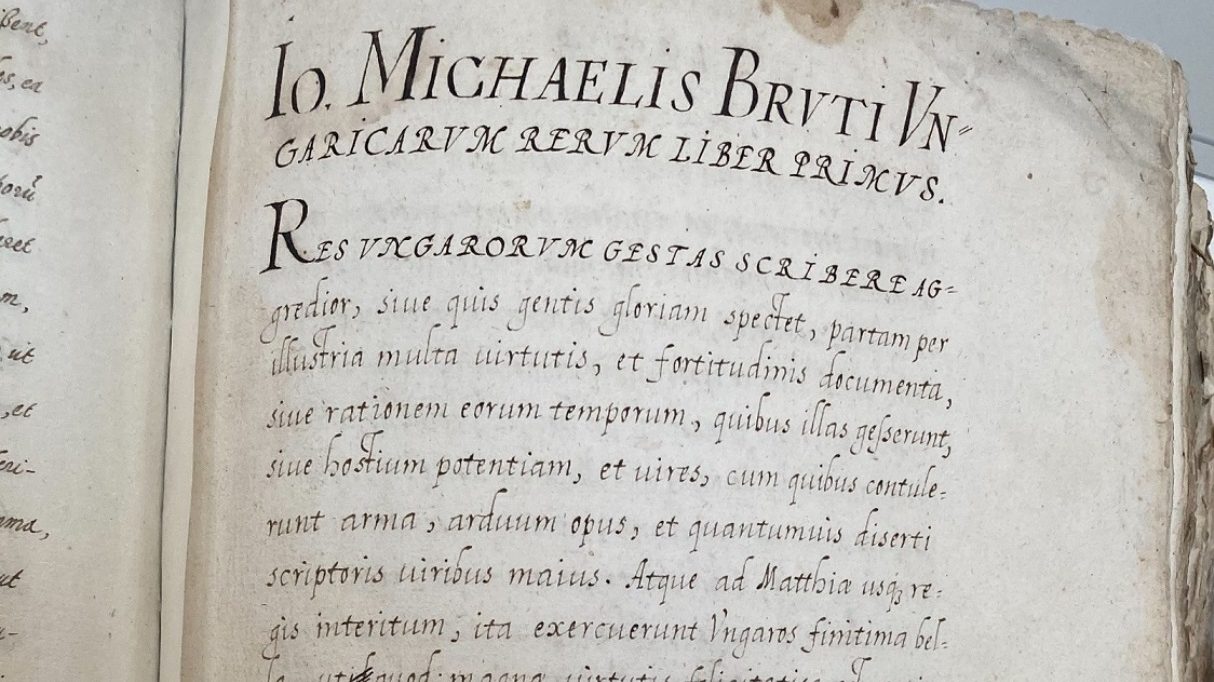 ßent,
es, ea
nobis
m,
ut
, et
eri-
ma,
ut
IO. MICHAELIS BRVTI VN=
GARICARVM RERVM LIBER PRIMVS.
RES VNGARORVM GESTAS SCRIBERE AG=
gredior, siue quis gentis gloriam spectet, partam per
illustria multa uirtutis, et fortitudinis documenta,
siue rationem eorum temporum, quibus illas gesserunt,
siue hostium potentiam, et uires, cum quibus contule=
runt arma, arduum opus, et quantumuis diserti
scriptoris uiribus maius. Atque ad Matthiæ usq; re=
gis interitum, ita exercuerunt Vngaros finitima bel=